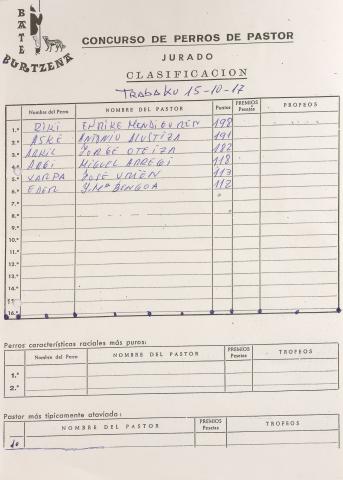 BATE
BURTZEÑA
CONCURSO DE PERROS DE PASTOR
JURADO
CLASIFICACION
TRABAKU 15-10-17
Nombre del Perro NOMBRE DEL PASTOR Puntos PREMIOS Pesetas TROFEOS
1.º RIKI ENRIKE MENDIGUREN 198
2.º ASKE ANTONIO ALUSTIZA 191
3.º JORGE OTEIZA 182
4.º ARGI MIGUEL ARREGI 118
5.º XARPA JOSÉ URIEN 113
6.º EDER J. Mª BENGOA 112
7.º
8.º
9.º
10.º
11.º
12.º
13.º
14.º
15.º
16.º
Perros características raciales más puros:
Nombre del Perro NOMBRE DEL PASTOR PREMIOS Pesetas TROFEOS
1.º
2.º
Pastor más típicamente ataviado:
NOMBRE DEL PASTOR PREMIOS Pesetas TROFEOS